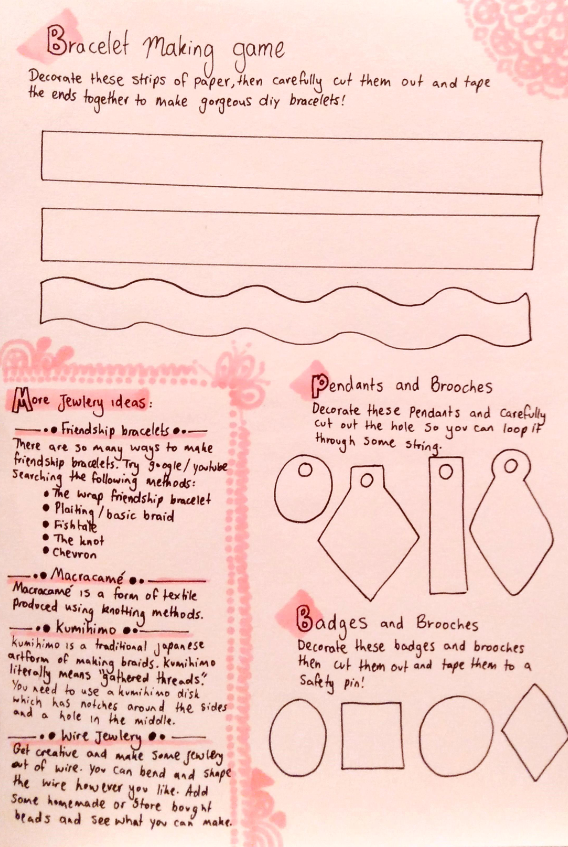 Bracelet Making game
Decorate these strips of paper, then carefully cut them out and tape
the ends together to make gorgeous diy bracelets!
More Jewlery ideas:
Friendship bracelets
There are so many ways to make
friendship bracelets. Try google/youtube
searching the following methods:
• The wrap friendship bracelet
• Plaiting/basic braid
• Fishtale
• The knot
• Chevron
Macracamé
Macracamé is a form of textile
produced using knotting methods.
Kumihimo
Kumihimo is a traditional japanese
artform of making braids. Kumihimo
literally means "gathered threads".
You need to use a kumihimo disk
which has notches around the sides
and a hole in the middle.
Wire Jewlery
Get creative and make some jewlery
out of wire. You can bend and shape
the wire however you like. Add
some homemade or store bought
beads and see what you can make.
Pendants and Brooches
Decorate these Pendants and carefully
cut out the hole so you can loop it
through some string.
Badges and Brooches
Decorate these badges and brooches
then cut them out and tape them to a
safety pin!